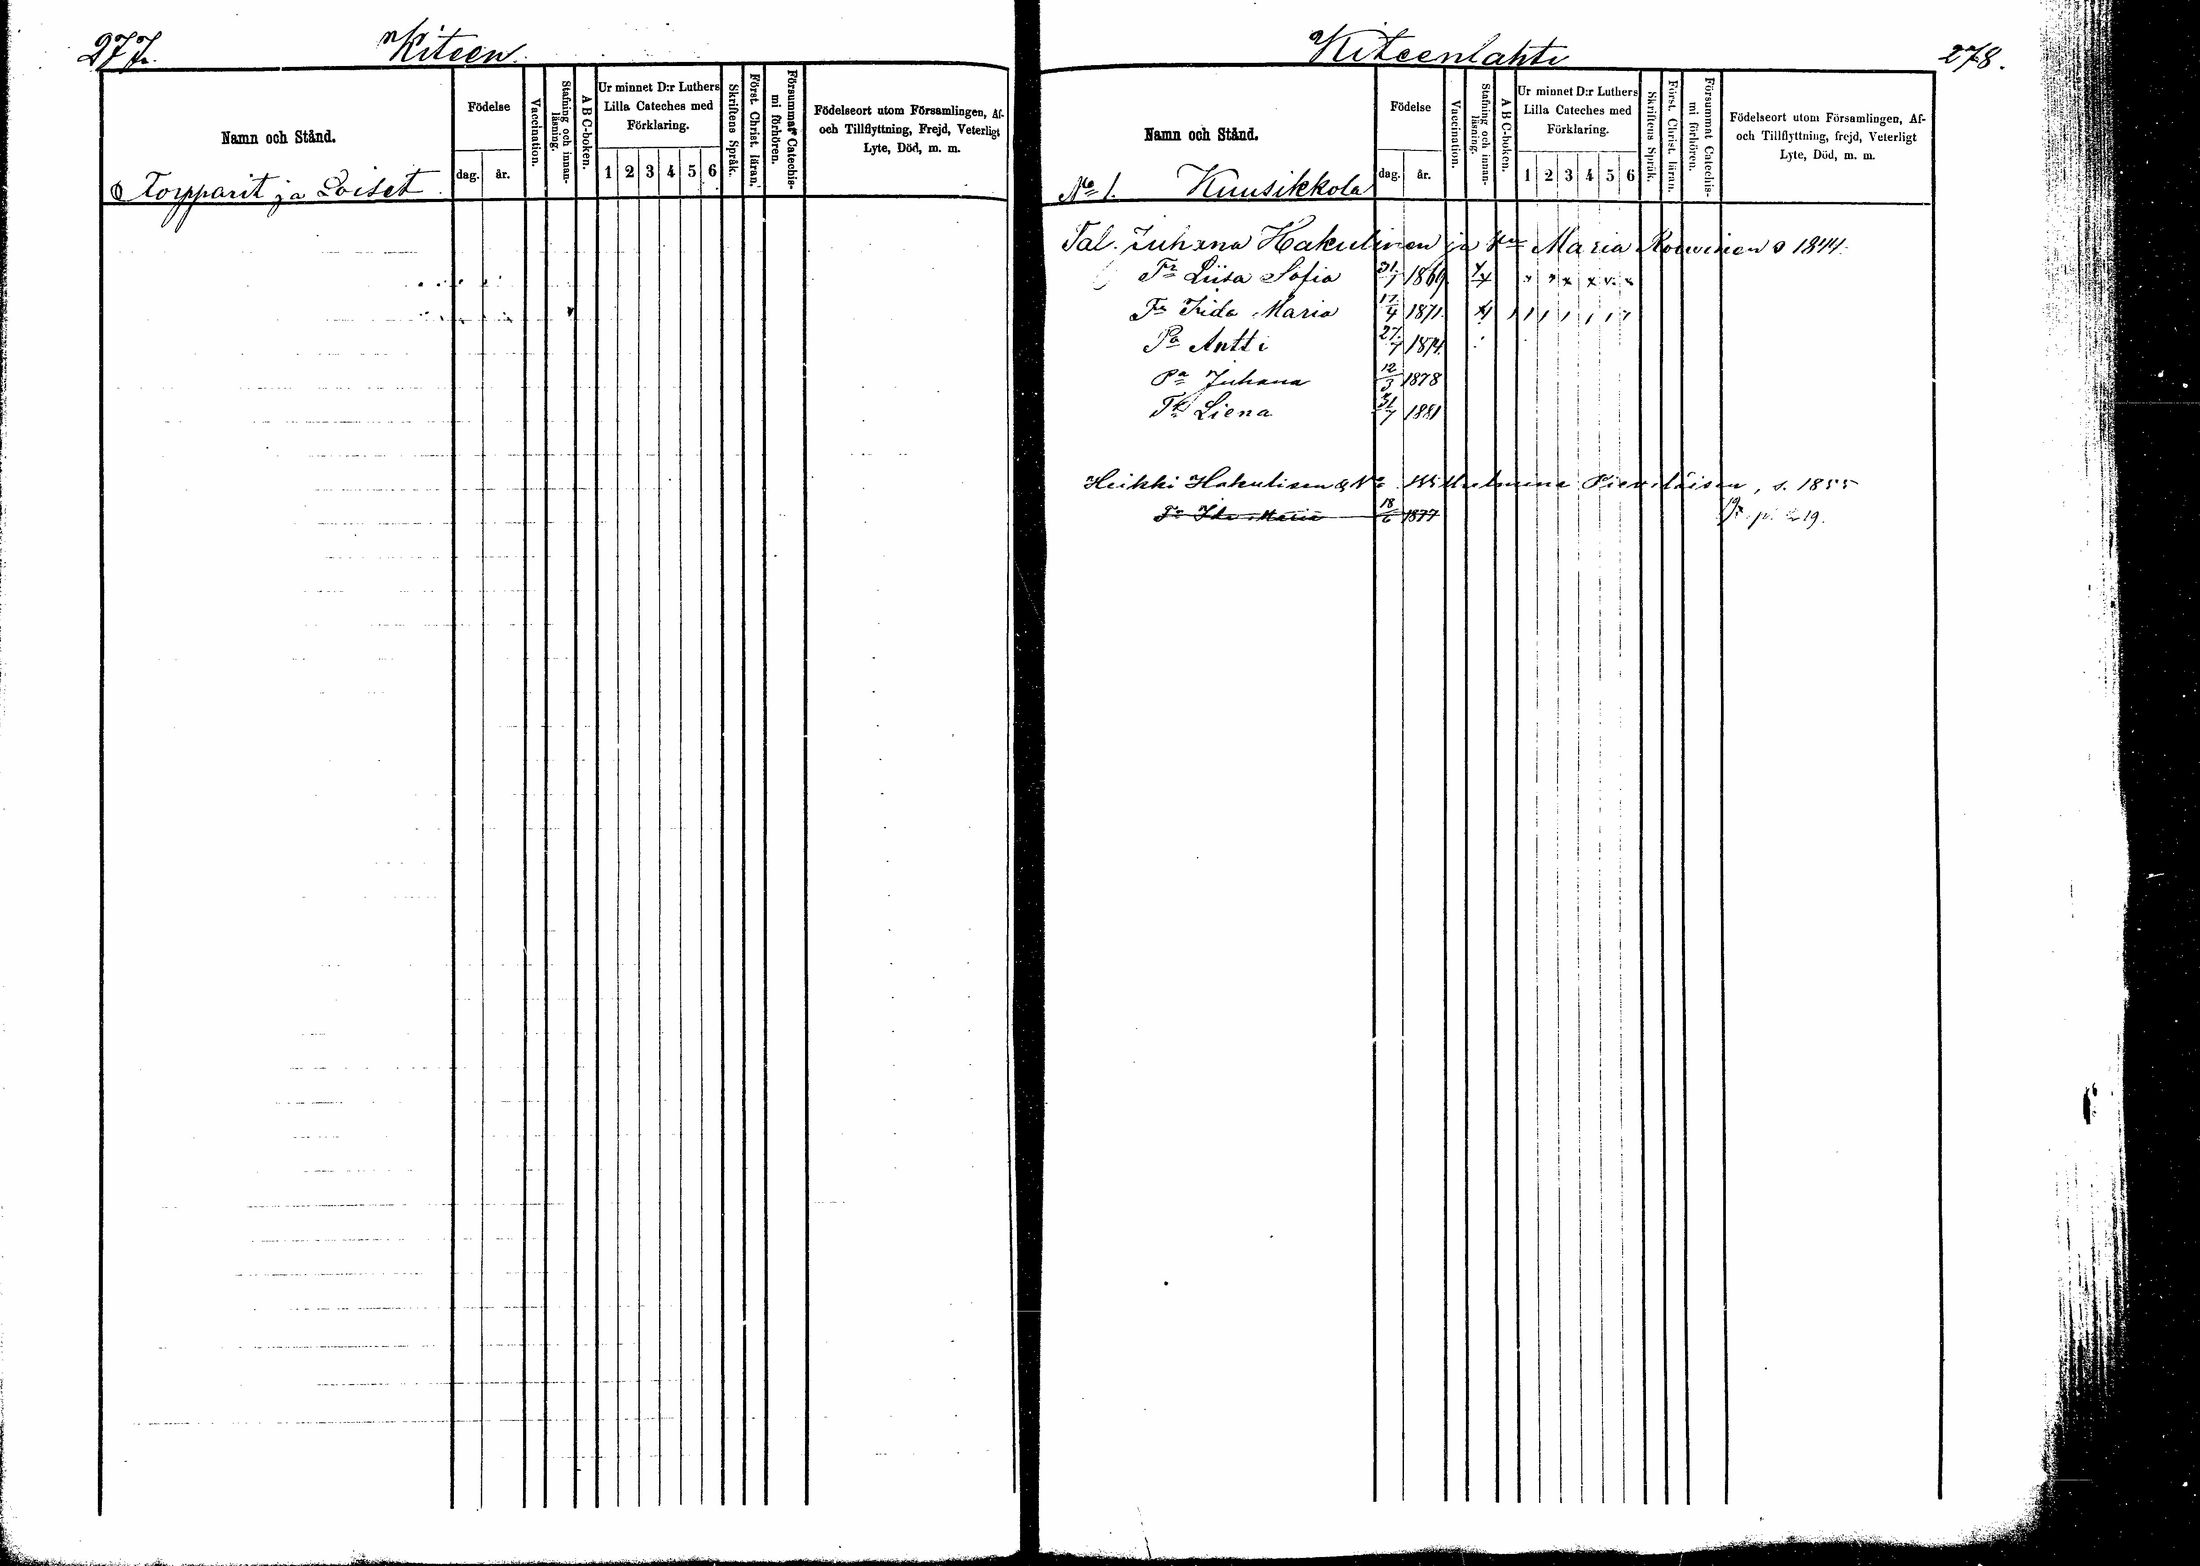 277.
Kiteen
Namn och Stånd.
Torpparit ja Loiset
Födelse
dag. år.
Vaccination.
Stafning och innan-
läsning.
A B C-boken.
Ur minnet D:r Luthers
Lilla Cateches med
Förklaring.
1 2 3 4 5 6
Skriftens Språk.
Först. Christ. läran.
Försummat Catechis-
mi förhören.
Födelseort utom Församlingen, Af-
och Tillflyttning, Frejd, Veterligt
Lyte, Död, m. m.
Kiteenlahti
278.
Namn och Stånd.
No 1. Kuusikkola
Födelse
dag. år.
Vaccination.
Stafning och innan-
läsning.
A B C-boken.
Ur minnet D:r Luthers
Lilla Cateches med
Förklaring.
1 2 3 4 5 6
Skriftens Språk.
Först. Christ. läran.
Försummat Catechis-
mi förhören.
Födelseort utom Församlingen, Af-
och Tillflyttning, frejd, Veterligt
Lyte, Död, m. m.
Tal. Juhana Hakulinen ja Maria 1844.
Liisa Sofia 31/7 1869
Maria 17/4 1871
Pa Antti 27/7 1874
Pa Juhana 12/3 1878
Liena 31/7 1881
Heikki Hakulinen & s. 1855
Ida Maria 18/6 1877 p. 19.